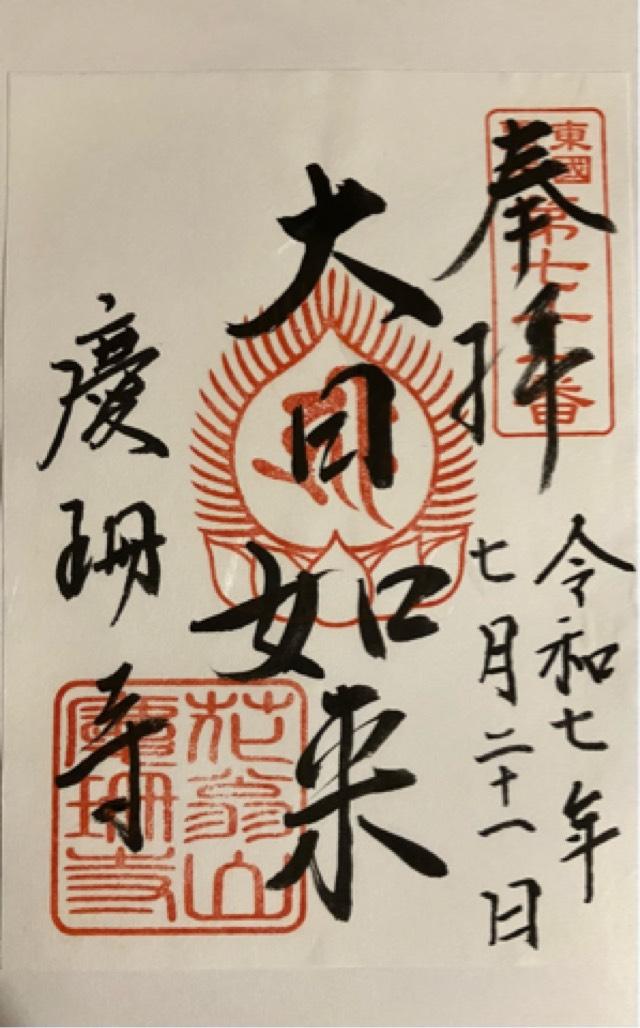 奉拝
東國
令和七年
七月二十一日
大日如来
慶珊寺
花翁山
慶珊寺